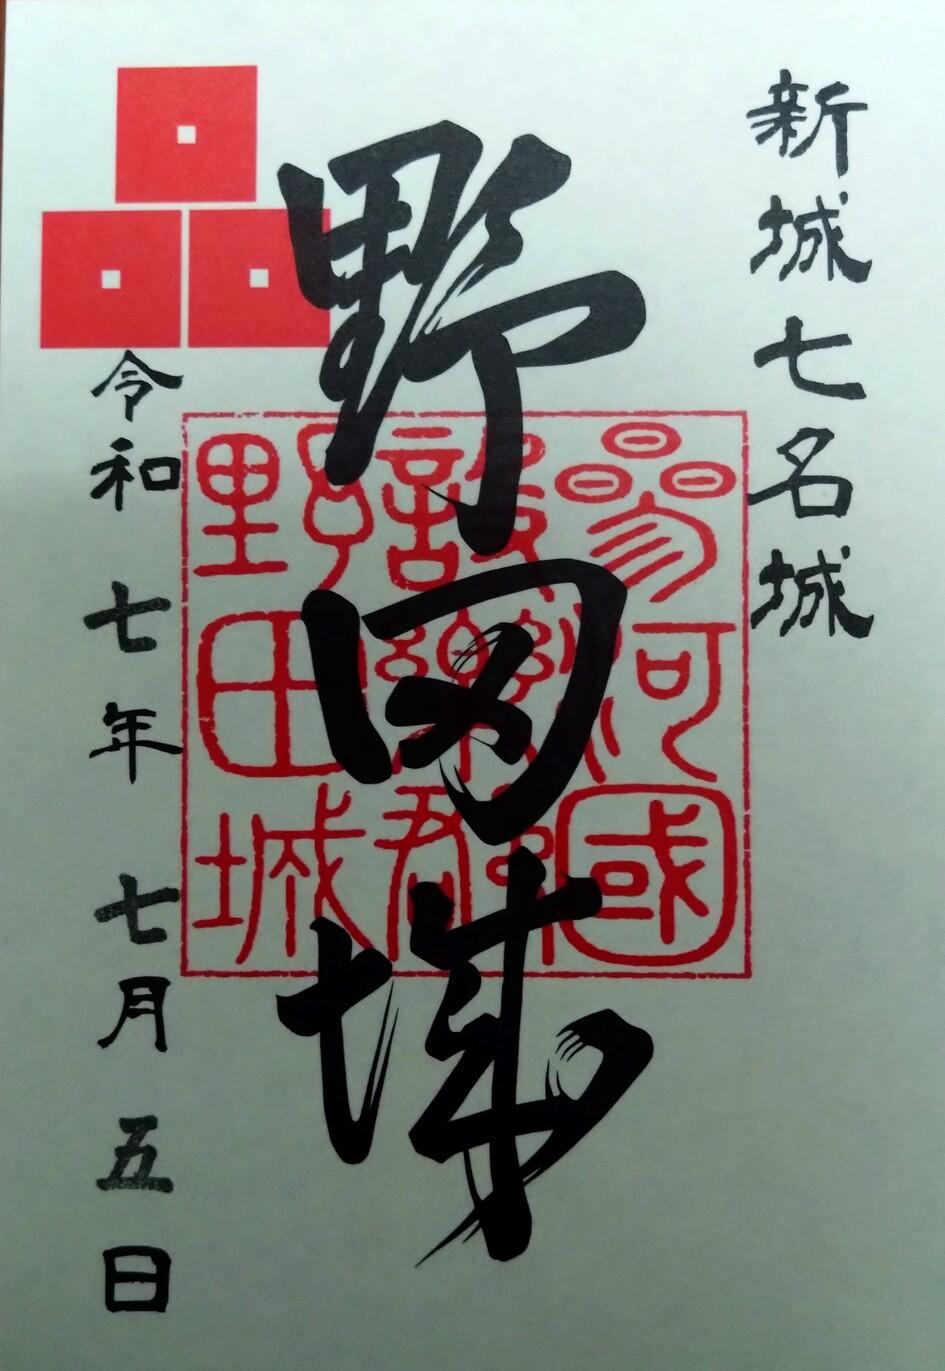 新城七名城
野田城
參河國
設樂郡
野田城
令和七年七月五日